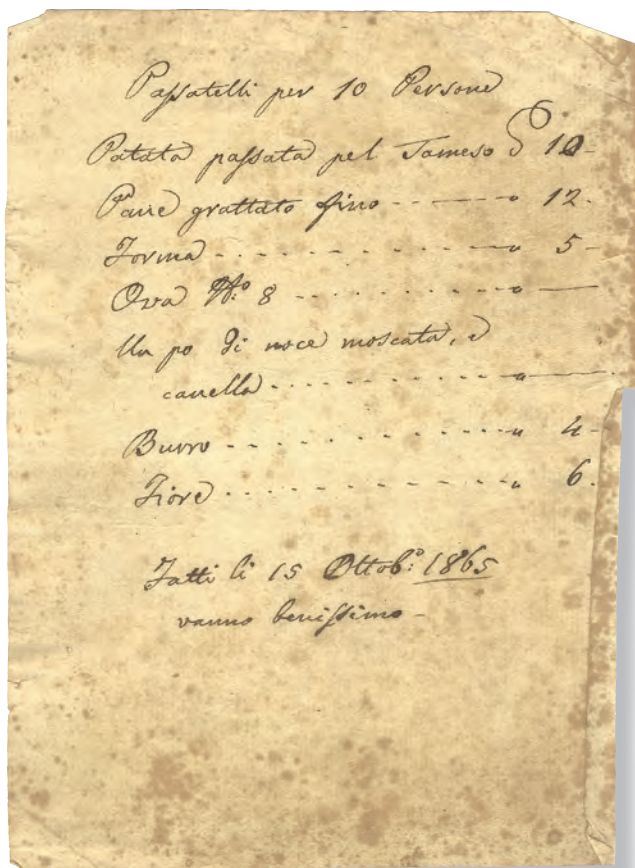 Passatelli per 10 Persone
Patata passata pel Tameso 10-
Pane grattato fino - - - - - " 12.
Forma - - - - - - - - - - " 5-
Ova No. 8 - - - - - - - - " —
Un po di noce moscata, e
canella - - - - - - - - - " —
Burro - - - - - - - - - - " 4-
Fiore - - - - - - - - - - " 6.
Fatti li 15 Ottobº: 1865
vanno benissimo -